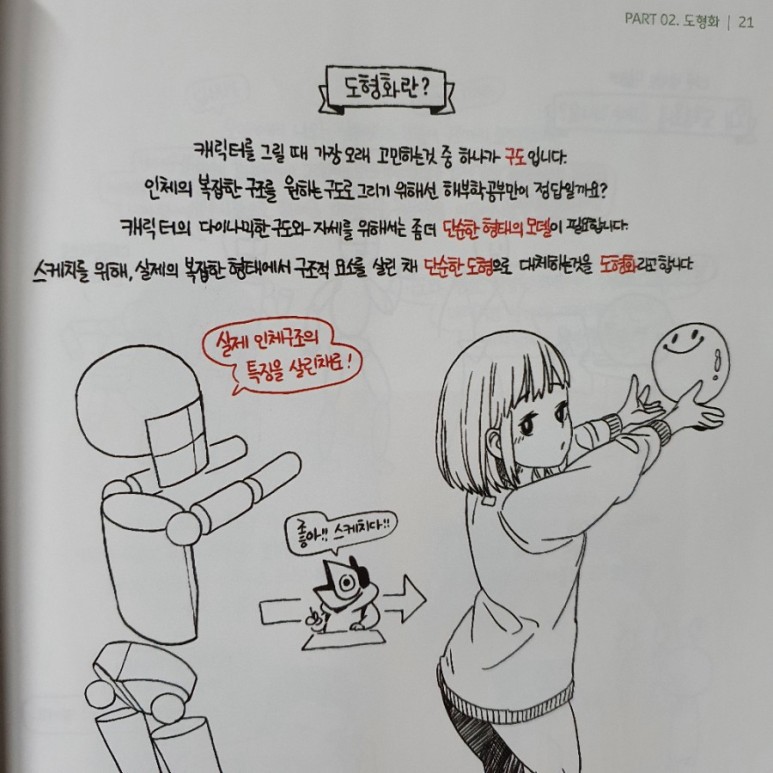 PART 02. 도형화 | 21
도형화란?
캐릭터를 그릴 때 가장 오래 고민하는것 중 하나가 구도입니다.
인체의 복잡한 구조를 원하는 구도로 그리기 위해선 해부학공부만이 정답일까요?
캐릭터의 다이나믹한 구도와 자세를 위해서는 좀더 단순한 형태의 모델이 필요합니다.
스케치를 위해, 실제의 복잡한 형태에서 구조적 요소를 살린 채 단순한 도형으로 대체하는것을 도형화라고 합니다.
실제 인체구조의
특징을 살린채로!
좋아!! 스케치다!!